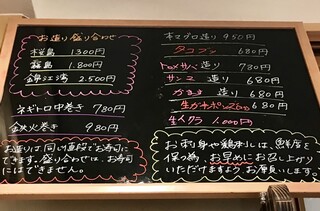 お造り盛り合わせ
桜島 1300円
霧島 1.800円
錦江湾 2.500円
ネギトロ中巻き 780円
鉄火巻き 980円
お造りは同じ値段でお寿司に
できます。盛り合わせは、お寿司
にはできません。
本マグロ造り 950円
タコブツ 680円
造り 780円
サンマ造り 680円
かます造り 680円
生ガキポン酢 680円
生イクラ 1.000円
お刺身や鶏刺しは、鮮度を
保つ為、お早めにお召し上がり
いただけますよう、お願いします。